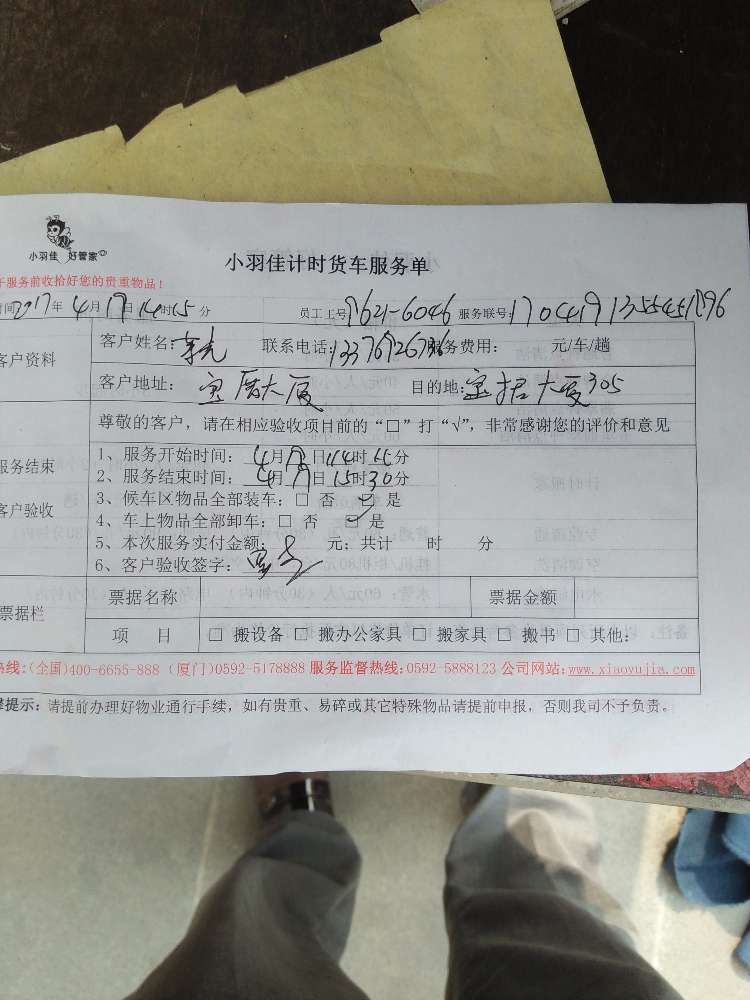 小羽佳 好管家
小羽佳计时货车服务单
于服务前收拾好您的贵重物品！
时间2017年4月17日14时15分 员工工号 621-6046 服务联号:
客户资料 客户姓名: 联系电话: 服务费用: 元/车/趟
客户地址: 大厦 目的地: 大厦305
尊敬的客户，请在相应验收项目前的“□”打“√”，非常感谢您的评价和意见
服务结束
客户验收
1、服务开始时间: 4月17日14时15分
2、服务结束时间: 4月17日15时30分
3、候车区物品全部装车: □ 否 ☑ 是
4、车上物品全部卸车: □ 否 ☑ 是
5、本次服务实付金额: 元; 共计 时 分
6、客户验收签字:
票据栏 票据名称 票据金额
项 目 □ 搬设备 □ 搬办公家具 □ 搬家具 □ 搬书 □ 其他:
热线:(全国)400-6655-888 (厦门)0592-5178888 服务监督热线:0592-5888123 公司网站:www.xiaoyujia.com
提示: 请提前办理好物业通行手续，如有贵重、易碎或其它特殊物品请提前申报，否则我司不予负责。